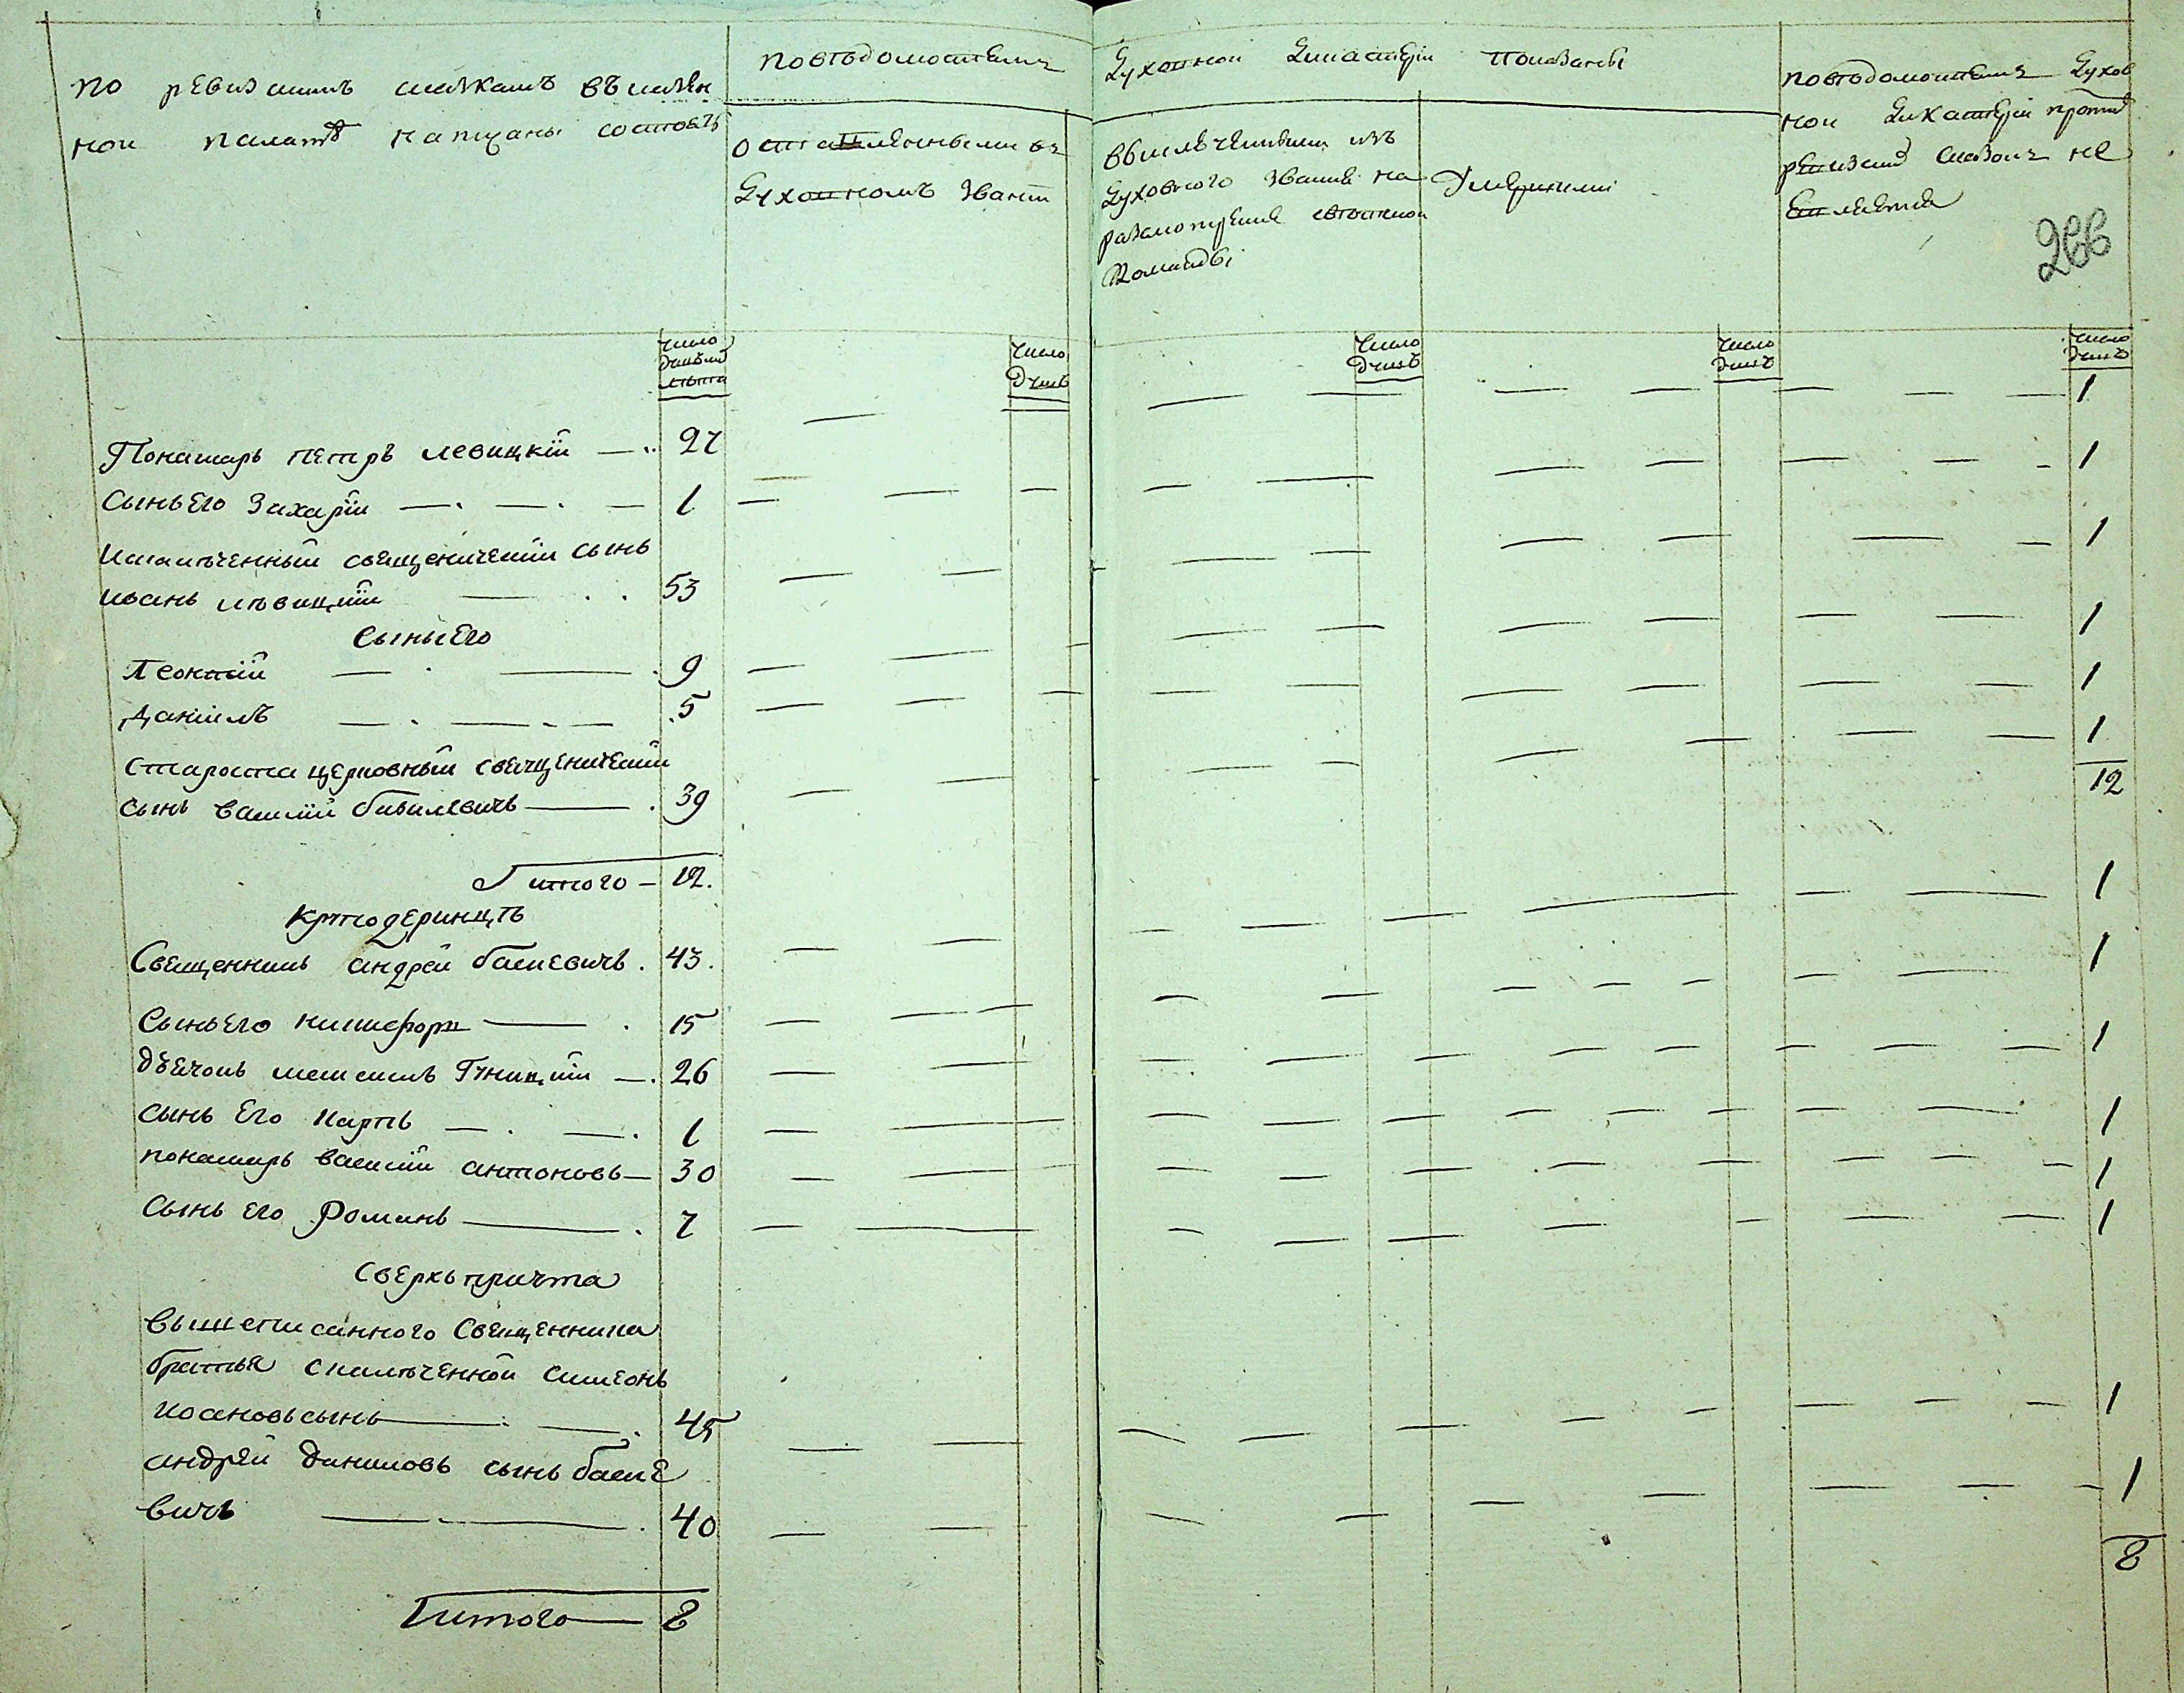 по ревизскимъ сказкамъ въ казен
ной палатѣ написаны состоятъ
По вѣдомостямъ Духовной Дикастеріи показаны
оставленными въ
Духовномъ званіи
выключенными изъ
Духовного званія на
разсмотреніе свѣтской
Команды
Умершими
По вѣдомостямъ Духов
ной Дикастеріи против
ревизскихъ сказокъ не
является
266
число душъ и лѣта
число душъ
число душъ
число душъ
число душъ
Понамарь петръ левицкій 27 1
Сынъ Его Захарій 1 1
Искалѣченный священическій сынъ
иванъ лѣвицкій 53 1
Сыны Его
Леонтій 9 1
Даніилъ 5 1
староста церковный священическій
сынъ василій 39 1
Итого 12. 12
Священникъ андрей басиевичъ. 43. 1
Сынъ Его никифоръ 15 1
дьячокъ 26 1
сынъ Его карпъ 1 1
понамарь василій антоновъ 30 1
Сынъ его Романъ 7 1
Сверхъ причта
вышеписанного Священника
братья скалѣченной симеонъ
иоановъ сынъ 45 1
андрей даниловъ сынъ басие
вичъ 40 1
Итого 8 8